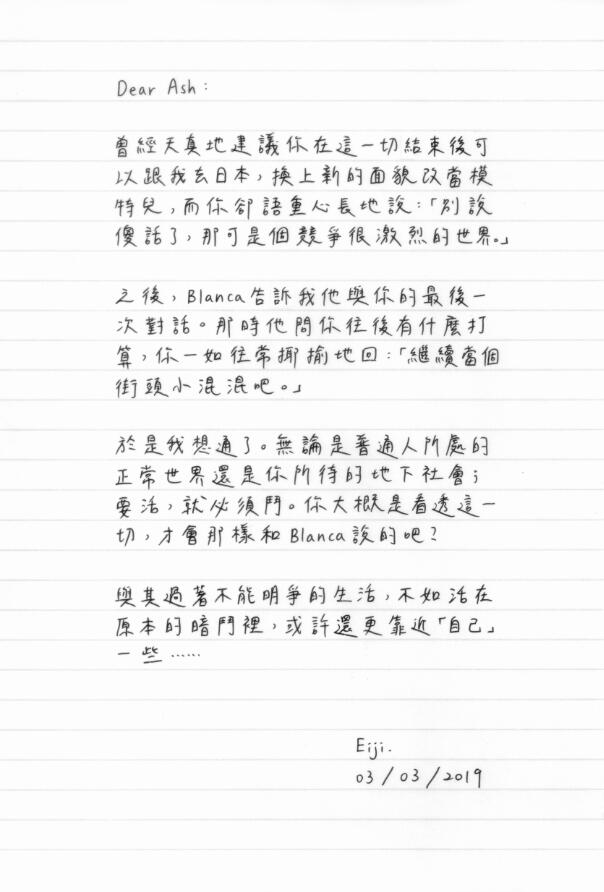 Dear Ash:
曾經天真地建議你在這一切結束後可
以跟我去日本，換上新的面貌改當模
特兒，而你卻語重心長地說：「別說
傻話了，那可是個競爭很激烈的世界。」
之後，Blanca告訴我他與你的最後一
次對話。那時他問你往後有什麼打
算，你一如往常揶揄地回：「繼續當個
街頭小混混吧。」
於是我想通了。無論是普通人所處的
正常世界還是你所待的地下社會；
要活，就必須鬥。你大概是看透這一
切，才會那樣和Blanca說的吧？
與其過著不能明爭的生活，不如活在
原本的暗鬥裡，或許還更靠近「自己」
一些……
Eiji.
03/03/2019